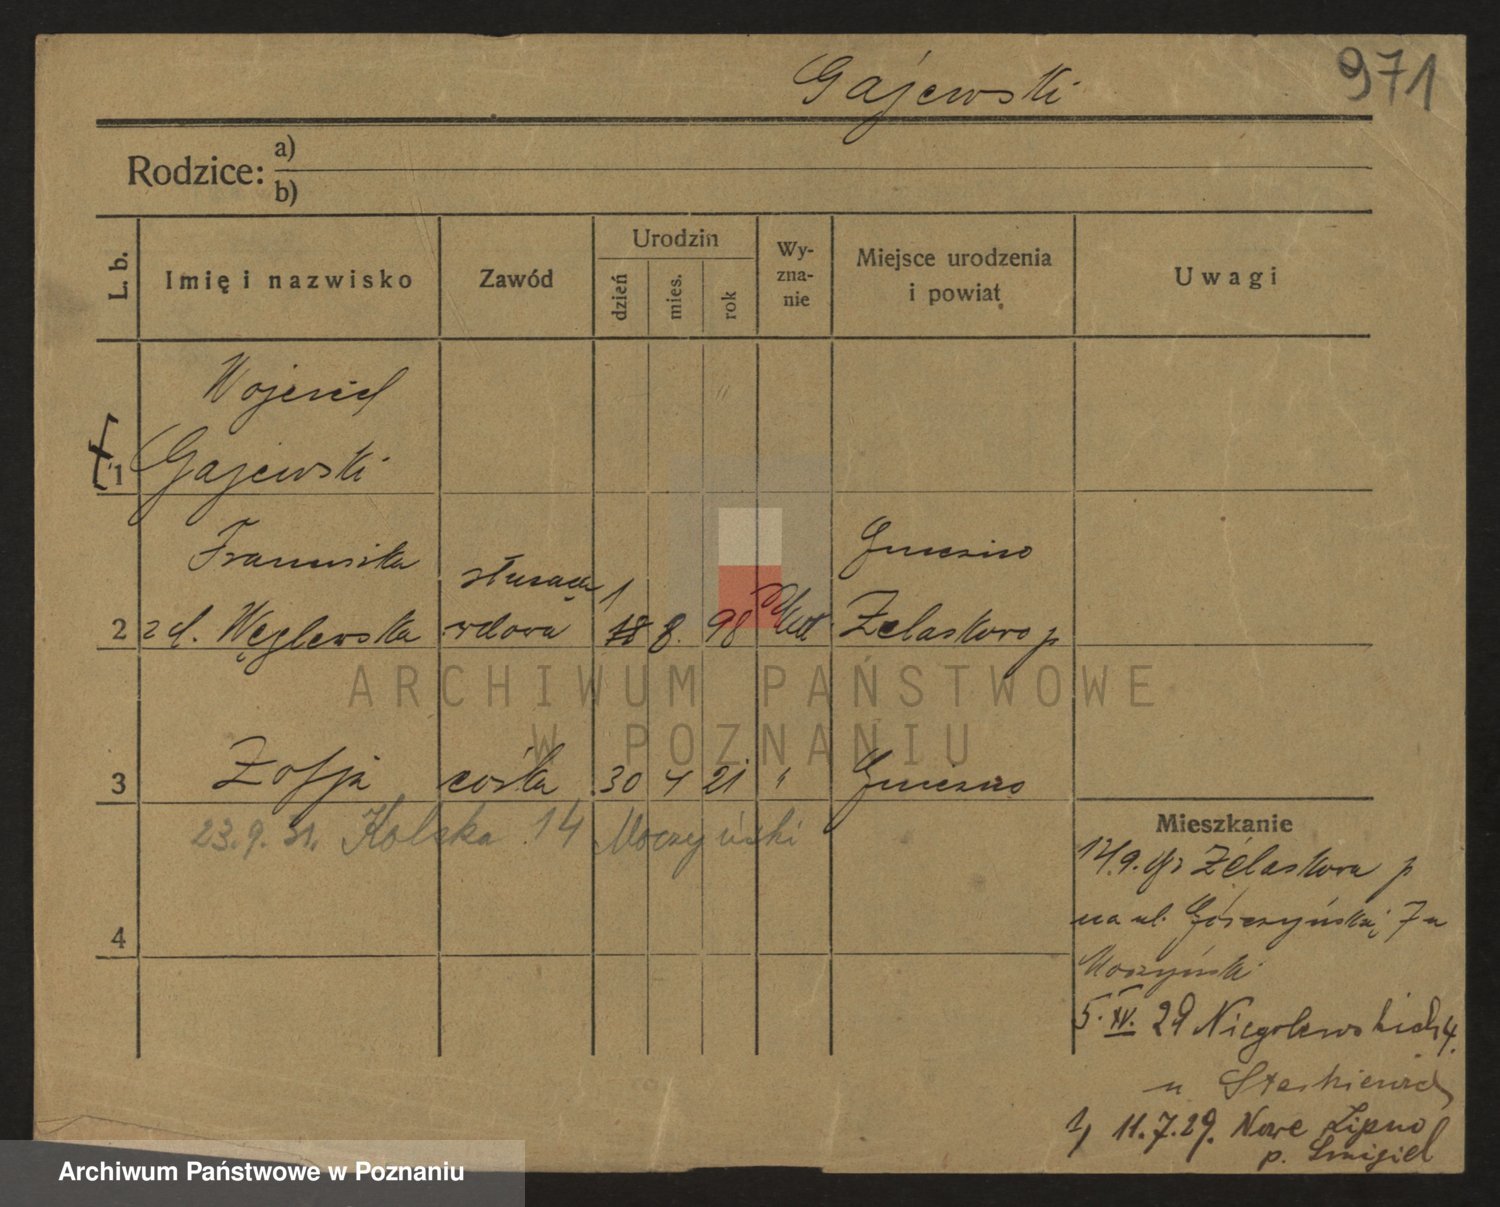 Gajewski
971
Rodzice: a)
b)
L. b.
Imię i nazwisko
Zawód
Urodzin
dzień
mies.
rok
Wy-
zna-
nie
Miejsce urodzenia
i powiat
Uwagi
Wojciech
1 Gajewski
Franciszka
służąca
Gniezno
2 zd. Węglewska
wdowa
1 8. 98
Żelaskowo p
ARCHIWUM PAŃSTWOWE
W POZNANIU
3 Zofja córka 30 4 21 " Gniezno
23.9.31. Kolska 14 Moczyński
Mieszkanie
Żelaskowa p
na ul. 7 u
Moczyński
4
5. IV. 29 Niegolewskich 4.
u
11.7.29. Nowe Lipno
p. Śmigiel
Archiwum Państwowe w Poznaniu